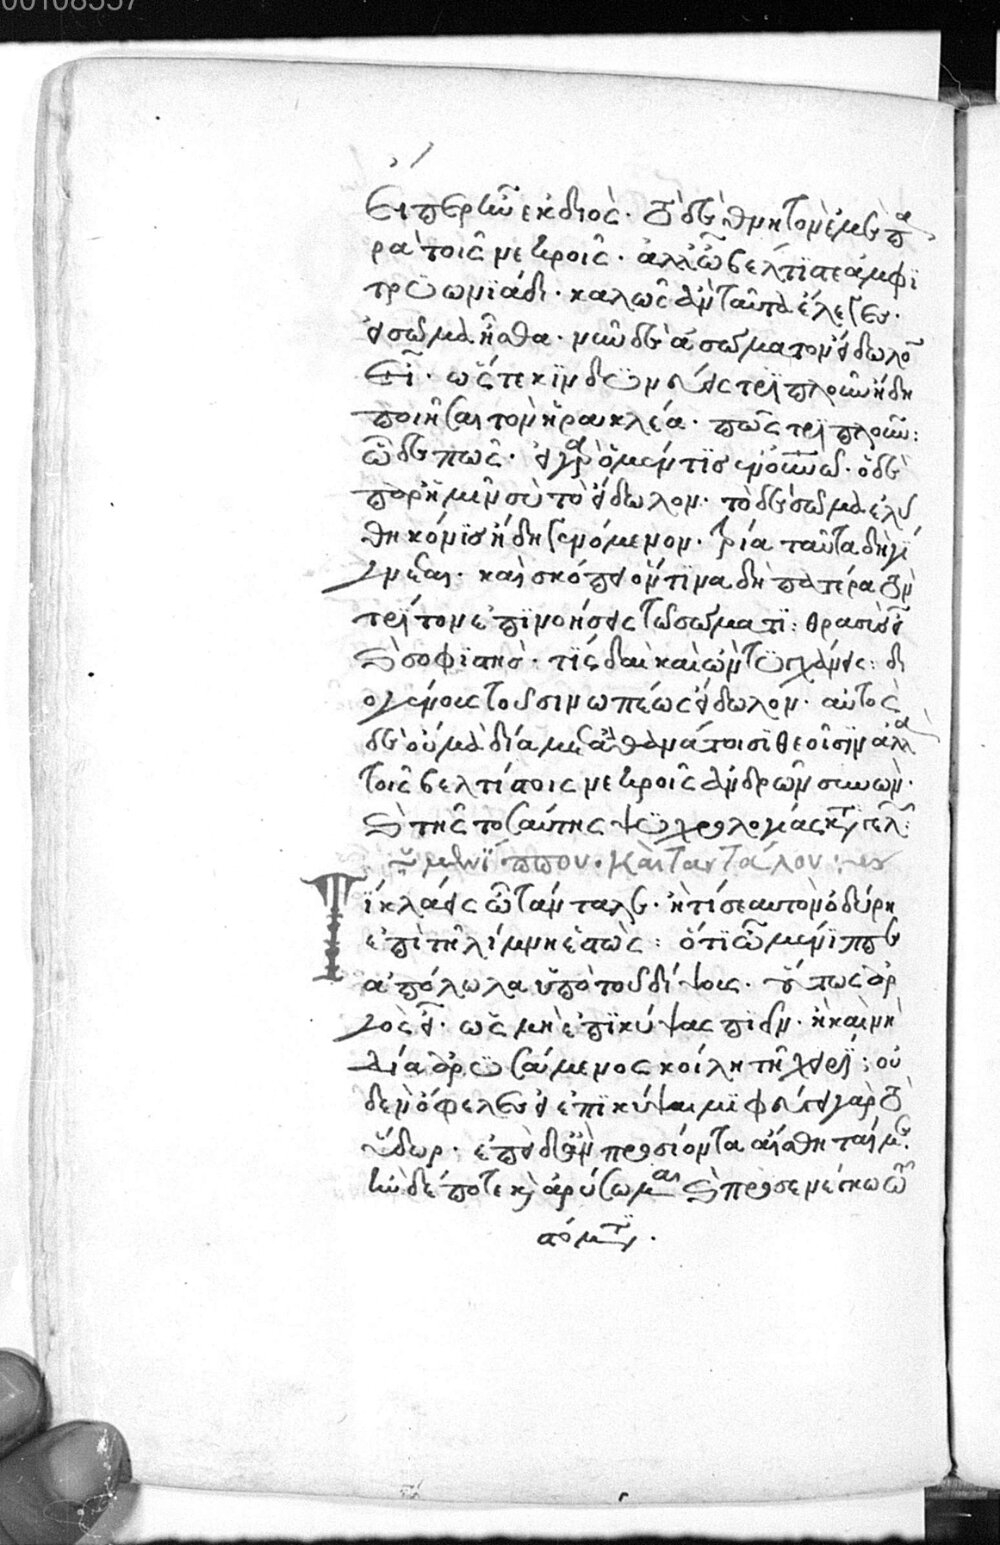 00108557
ὅπερ ἦν ἐκ διὸς. τὸ δὲ θνητὸν ἐμὲ πα
ρὰ τοῖς νεκροῖς. ἀλλ' ὦ βέλτιστε ἀμφι
τρυωνιάδη. καλῶς ἂν ταῦτα ἔλεγες.
εἰ σῶμα ἦσθα. νῦν δὲ ἀσώματον εἴδωλον
εἶ. ὥστε κινδυνεύεις τριπλοῦν ἤδη
ποιῆσαι τὸν ἡρακλέα. πῶς τριπλοῦν:
ὧδέ πως. εἰ γὰρ ὁ μέν τις ἐν οὐρανῷ. ὁ δὲ
παρ' ἡμῖν σὺ τὸ εἴδωλον. τὸ δὲ σῶμα ἐλύ
θη κόνις ἤδη γενόμενον. τρία ταῦτα δὴ γί
γνεται. καὶ σκόπει ὅντινα δὴ πατέρα τὸν
τρίτον ἐπινοήσεις τῷ σώματι: θρασὺς εἶ
καὶ σοφιστής. τίς δαὶ καὶ ὢν τυγχάνεις: δι
ογένους τοῦ σινωπέως εἴδωλον. αὐτὸς
δὲ οὐ μὰ δία μετὰ ἀθανάτοισι θεοῖσιν ἀλλὰ
τοῖς βελτίστοις νεκροῖς ἀνδρῶν συνὼν.
καὶ τῆς τοσαύτης ψυχρολογίας καταγελῶ:
μενίππου. καὶ ταντάλου:
Τί κλάεις ὦ τάνταλε. ἢ τί σεαυτὸν ὀδύρη
ἐπὶ τῇ λίμνῃ ἑστὼς: ὅτι ὦ μένιππε
ἀπόλωλα ὑπὸ τοῦ δίψους. οὕτως ἀρ
γὸς εἶ. ὡς μὴ ἐπικύψας πιεῖν. ἢ καὶ νὴ
δία ἀρυσάμενος κοίλῃ τῇ χειρί: οὐ
δὲν ὄφελος εἰ ἐπικύψαιμι φεύγει γὰρ τὸ
ὕδωρ. ἐπειδὰν προσιόντα αἴσθηταί με.
ἢν δέ ποτε καὶ ἀρύσωμαι καὶ προσενέγκω τῷ
στόματι.